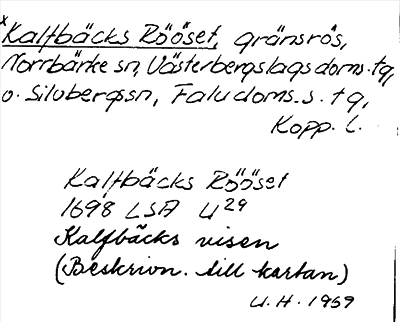 x
Kalfbäcks Rööset, gränsrös,
Norrbärke sn, Västerbergslags doms. tg,
o. Silvbergs sn, Falu doms. s. tg,
Kopp. l.
Kalfbäcks Rööset
1698 LSA U29
Kalfbäcks visen
(Beskrivn. till kartan)
U.H. 1959